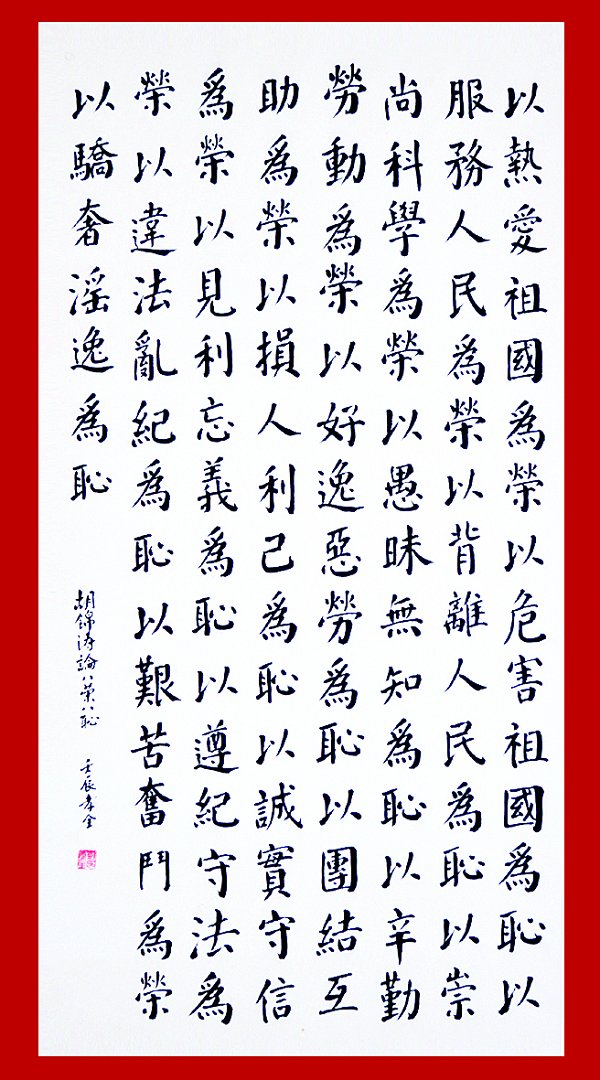 以熱愛祖國為榮以危害祖國為恥以
服務人民為榮以背離人民為恥以崇
尚科學為榮以愚昧無知為恥以辛勤
勞動為榮以好逸惡勞為恥以團結互
助為榮以損人利己為恥以誠實守信
為榮以見利忘義為恥以遵紀守法為
榮以違法亂紀為恥以艱苦奮鬥為榮
以驕奢淫逸為恥
胡錦濤論八榮八恥 壬辰孝全